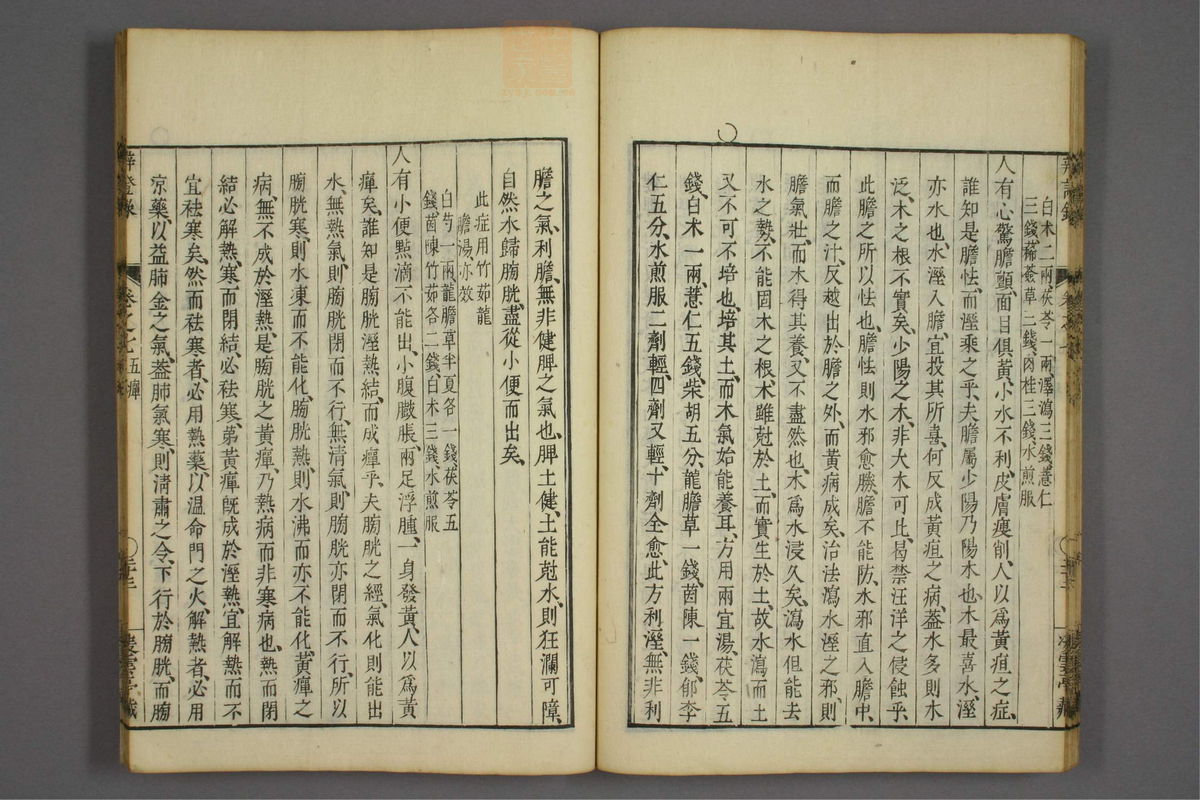 白术二兩茯苓一兩澤瀉三錢薏仁
三錢豨薟草三錢肉桂三錢水煎服
人有心驚膽顫、面目俱黃、小水不利、皮膚瘦削、人以爲黃疸之症、
誰知是膽怯、而溼乘之乎、夫膽屬少陽、乃陽木也、木最喜水、溼
亦水也、水溼入膽、宜投其所喜、何反成黃疸之病、葢水多則木
泛、木之根不實矣、少陽之木、非大木可比、曷禁汪洋之侵蝕乎、
此膽之所以怯也、膽怯則水邪愈勝、膽不能防、水邪直入膽中、
而膽之汁、反越出於膽之外、而黃病成矣、治法瀉水溼之邪、則
膽氣壯、而木得其養、又不盡然也、木爲水浸久矣、瀉水但能去
水之勢、不能固木之根、木雖尅於土、而實生於土、故水瀉而土
又不可不培也、培其土、而木氣始能養耳、方用兩宜湯、茯苓五
錢、白术一兩、薏仁五錢、柴胡五分、龍膽草一錢、茵陳一錢、郁李
仁五分、水煎服、二劑輕、四劑又輕、十劑全愈、此方利溼、無非利
膽之氣、利膽、無非健脾之氣也、脾土健、土能尅水、則狂瀾可障、
自然水歸膀胱、盡從小便而出矣、
此症用竹茹龍
膽湯亦效
白芍一兩龍膽草半夏各一錢茯苓五
錢茵陳竹茹各二錢白术三錢水煎服
人有小便點滴不能出、小腹臌脹、兩足浮腫、一身發黃、人以爲黃
癉矣、誰知是膀胱溼熱、結而成癉乎、夫膀胱之經、氣化則能出
水、無熱氣、則膀胱閉而不行、無清氣、則膀胱亦閉而不行、所以
膀胱寒、則水凍而不能化、膀胱熱、則水沸而亦不能化、黃癉之
病、無不成於溼熱、是膀胱之黃癉、乃熱病而非寒病也、熱而閉
結、必解熱、寒而閉結、必袪寒、第黃癉旣成於溼熱、宜解熱而不
宜袪寒矣、然而袪寒者、必用熱藥、以溫命門之火、解熱者、必用
涼藥、以益肺金之氣、葢肺氣寒、則清肅之令、下行於膀胱、而膀
辨證錄
卷之七
五癉